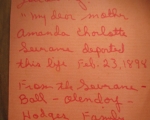 "my dear mother
Amanda Charlotte
Seurane departed
this life Feb. 23, 1898
From the Seurane-
Ball - Olendorf -
Hodges Family